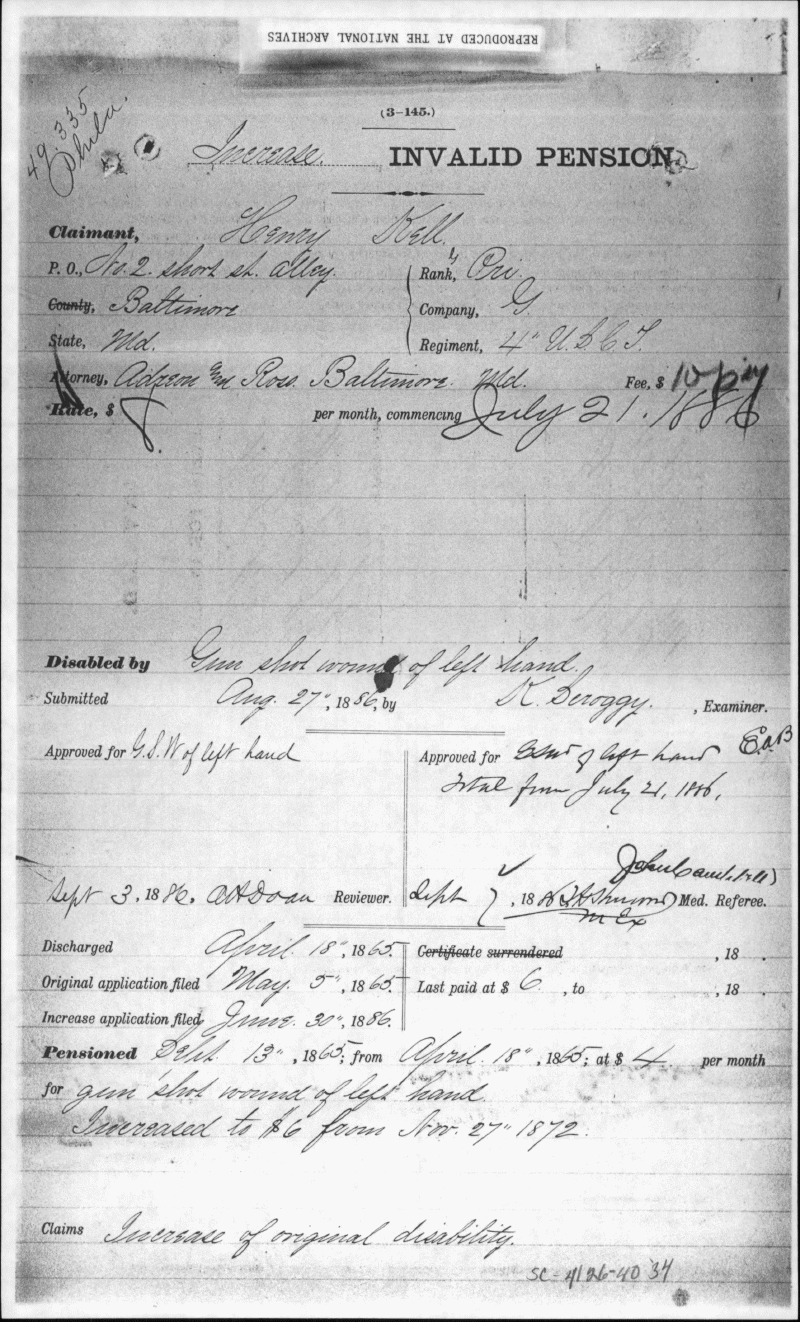 REPRODUCED AT THE NATIONAL ARCHIVES
49 335
Phila.
(3–145.)
Increase. INVALID PENSION.
Claimant, Henry Kell.
P. O., No. 2. short st. alley.
County, Baltimore
State, Md.
Rank, Pri.
Company, G.
Regiment, 4" U.S.C.T.
Attorney, Ross. Baltimore. Md. Fee, $ 10
Rate, $ 8 per month, commencing July 21. 1886
Disabled by Gun shot wound of left hand.
Submitted Aug. 27", 1886, by K. Deroggy. , Examiner.
Approved for G.S.W of left hand
Sept 3, 1886. Reviewer.
Approved for GSW of left hand E.a.B
Total from July 21, 1886.
Sept 7, 18 Med. Referee.
M Ex
Discharged April. 18", 1865.
Original application filed May. 5", 1865.
Increase application filed, June. 30", 1886.
Certificate surrendered , 18 .
Last paid at $ 6. , to , 18 .
Pensioned Sept. 13", 1865; from April. 18", 1865; at $ 4 per month
for gun shot wound of left hand.
Increased to $6 from Nov. 27" 1872.
Claims Increase of original disability.
SC-4126-40 34